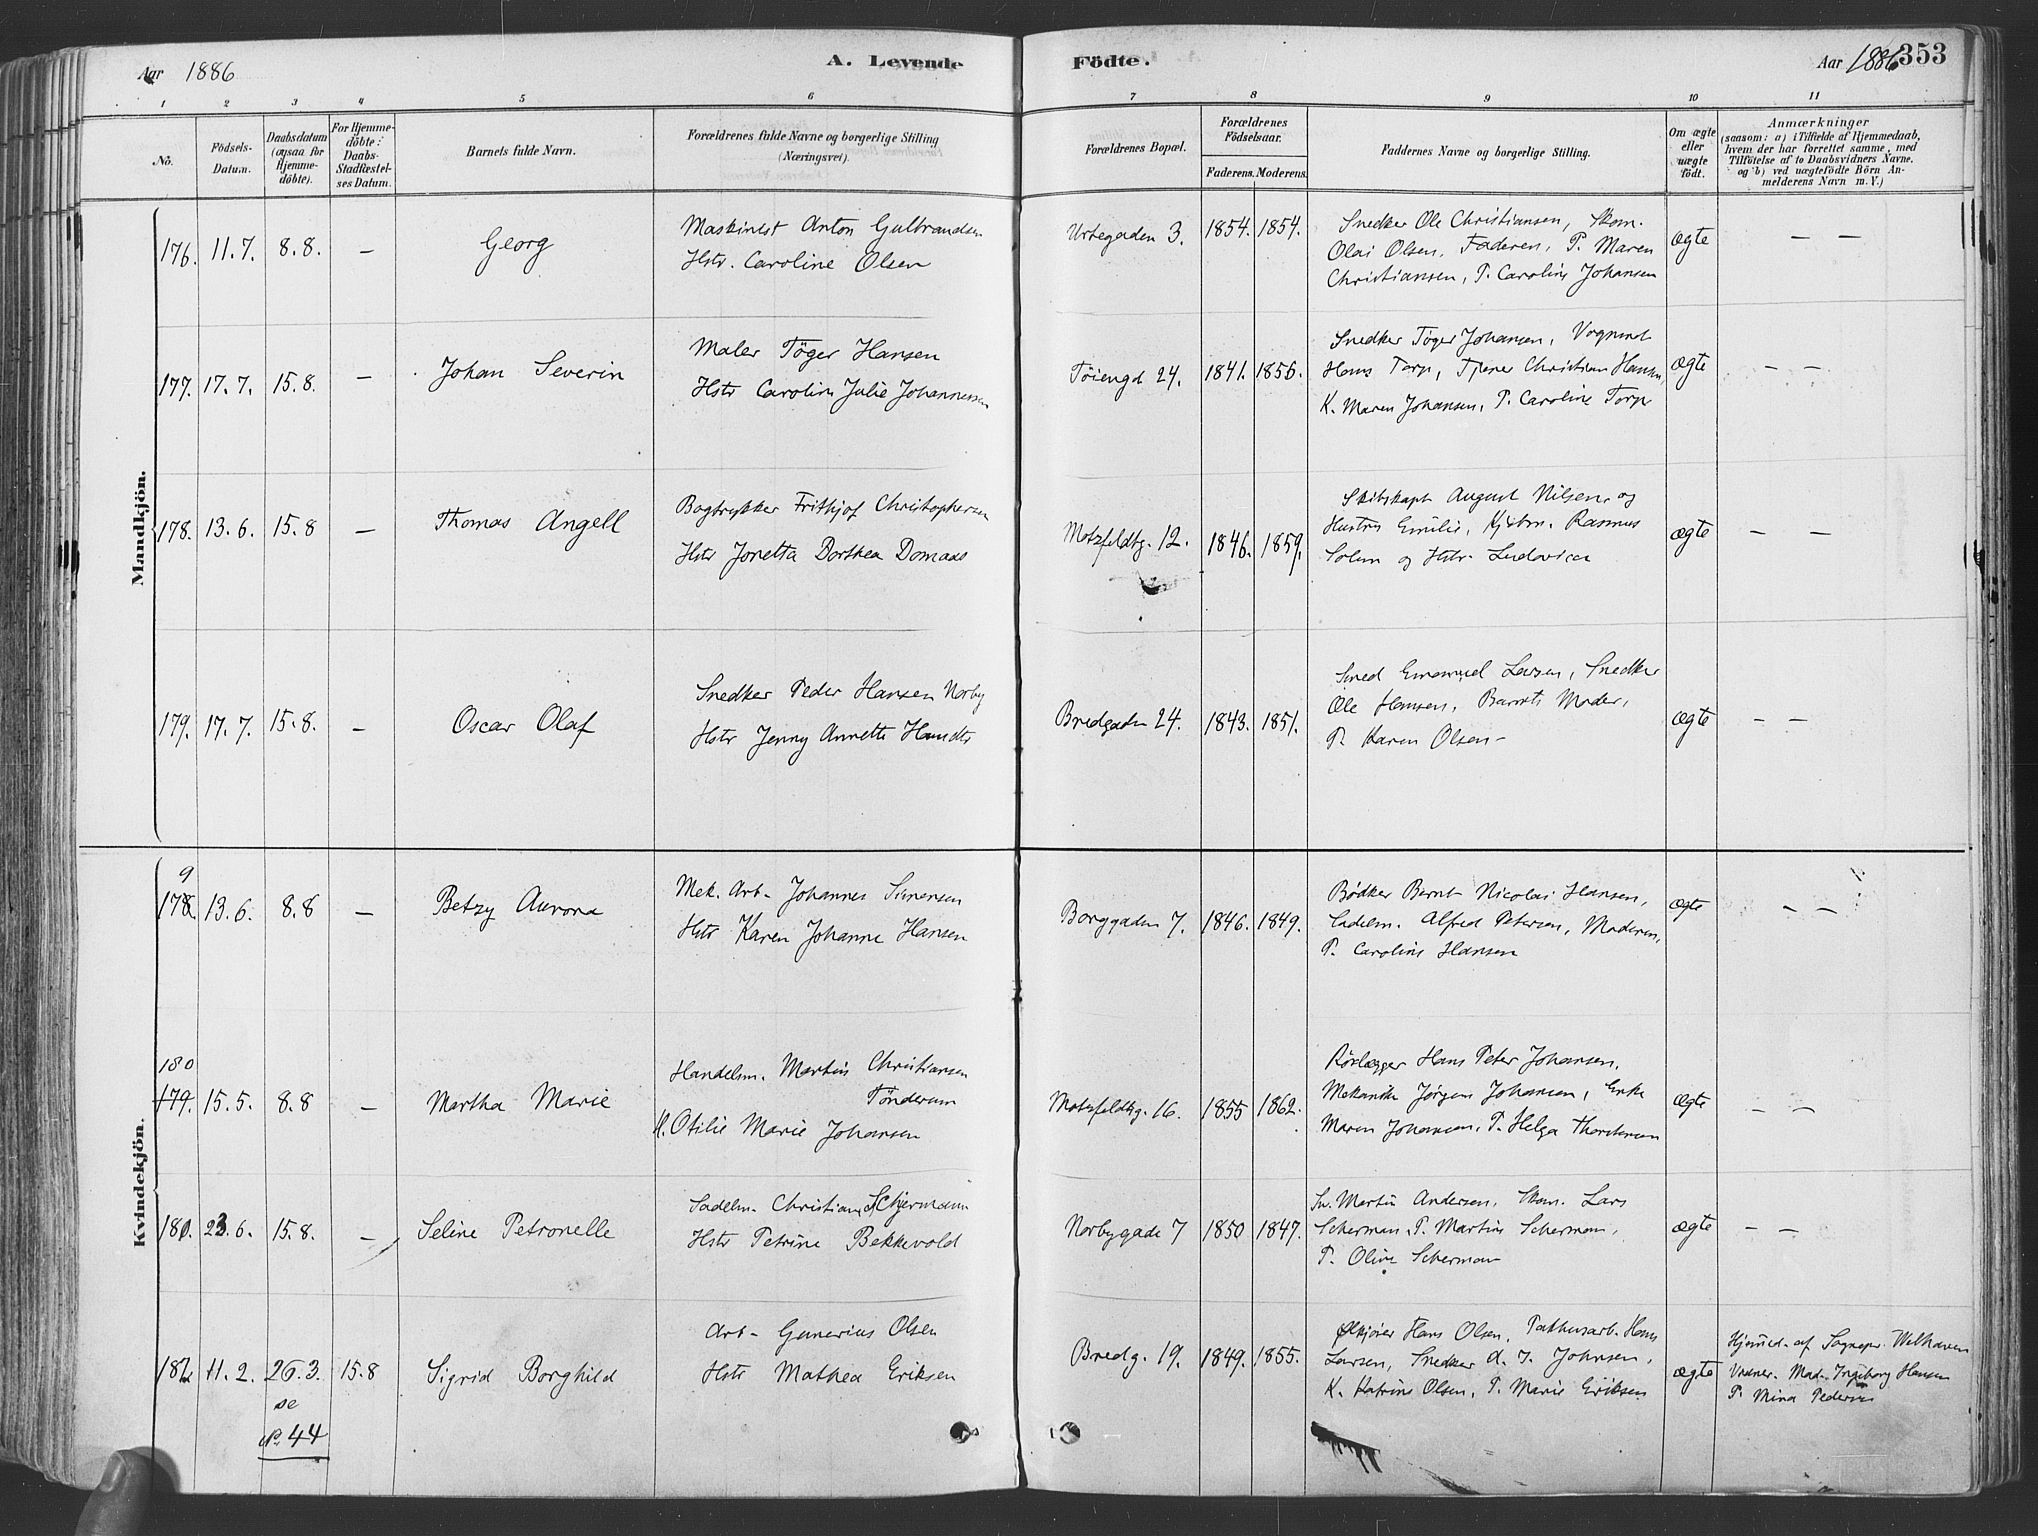 Aar 1886
A. Levende
Födte.
Aar 1886
353
1 2 3 4 5 6 7 8 9 10 11
No.
Födsels-
Datum.
Daabsdatum
(ogsaa for
Hjemme-
döbte).
For Hjemme-
döbte:
Daabs-
Stadfæstel-
ses Datum.
Barnets fulde Navn.
Forældrenes fulde Navne og borgerlige Stilling
(Næringsvei).
Forældrenes Bopæl.
Forældrenes
Födselsaar.
Faderens. Moderens.
Faddernes Navne og borgerlige Stilling.
Om ægte
eller
uægte
födt.
Anmærkninger
(saasom: a) i Tilfælde af Hjemmedaab,
hvem der har forrettet samme, med
Tilföielse af to Daabsvidners Navne,
og b) ved uægtefödte Börn An-
melderens Navn m. V.)
Mandkjön.
176. 11.7. 8.8. — Georg
Maskinist Anton Gulbrandsen
Hstr. Caroline Olsen
Urtegaden 3. 1854. 1854.
Snedker Ole Christiansen, Skom.
Olai Olsen, Faderen, P. Maren
Christiansen, P. Caroline Johansen
ægte — —
177. 17.7. 15.8. — Johan Severin
Maler Töger Hansen
Hstr Caroline Julie Johannessen
Töiengd 24. 1841. 1856.
Snedker Töger Johansen, Vognmd
Hans Torp, Tjener Christian Hansen,
K. Maren Johansen, P. Caroline Torp
ægte — —
178. 13.6. 15.8 — Thomas Angell
Bogtrykker Frithjof Christophersen
Hstr Jonetta Dorthea Domaas
Motzfeldtg. 12. 1846. 1859.
Skibskapt August Nilsen, og
Hustru Emilie, Kjøbm. Rasmus
Solem og Hstr. Ludovica
ægte — —
179. 17.7. 15.8. — Oscar Olaf
Snedker Peder Hansen Norby
Hstr Jenny Annette
Bredgaden 24. 1843. 1851.
Smed Emanuel Larsen, Snedker
Ole Hansen, Barnets Moder,
P. Karen Olsen-
ægte — —
Kvindekjön.
9
178. 13.6. 8.8 — Betzy Aurora
Mek. Arb- Johannes Simensen
Hstr Karen Johanne Hansen
Borggaden 7. 1846. 1849.
Bødker Bernt Nicolai Hansen,
Sadelm. Alfred Petersen, Moderen,
P. Caroline Hansen
ægte — —
180
179. 15.5. 8.8 — Martha Marie
Handelsm. Martin Christiansen
Tönderum
H. Otilie Marie Johansen
Motzfeldtsg. 16. 1855 1862.
Rørlægger Hans Peter Johansen,
Mekanik Jørgen Johansen, Enke
Maren Johansen, P. Helga Thorstensen
ægte — —
180. 23.6. 15.8. — Seline Petronelle
Sadelm- Christian Schjermann
Hstr Petrine Bekkevold
Norbygade 7 1850 1847.
Sn. Martin Andersen, Skom. Lars
Scherman, P. Martine Scherman,
P. Oline Scherman
ægte — —
182 11.2. 26.3. 15.8 Sigrid Borghild
se
No 44
Arb- Gunerius Olsen
Hstr Mathea Eriksen
Bredg. 19. 1849. 1855.
Ølkjører Hans Olsen, Pakhusarb. Hans
Larsen, Snedker A. J. Johnsen,
K. Katrine Olsen, P. Marie Eriksen
ægte
Hjemmed. af Sognepr. Welhaven
Vidner. Mad. Ingeborg Hansen
P. Mina Pedersen